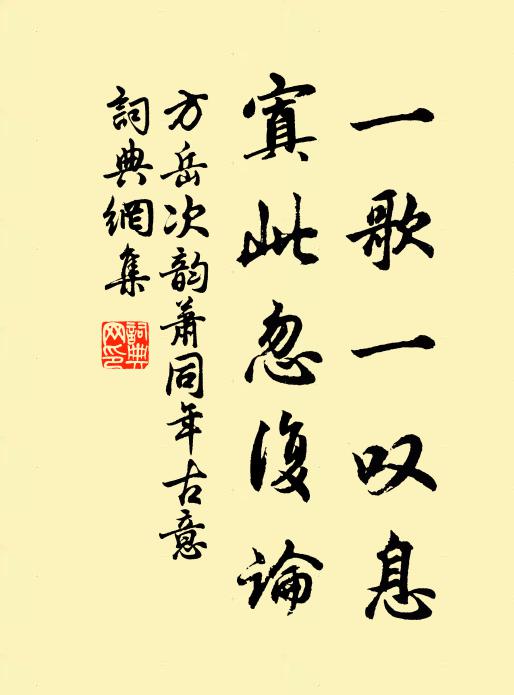 一歌一叹息
寘此忽復論
方岳次韵萧同年古意
詞典網集
詞典网印